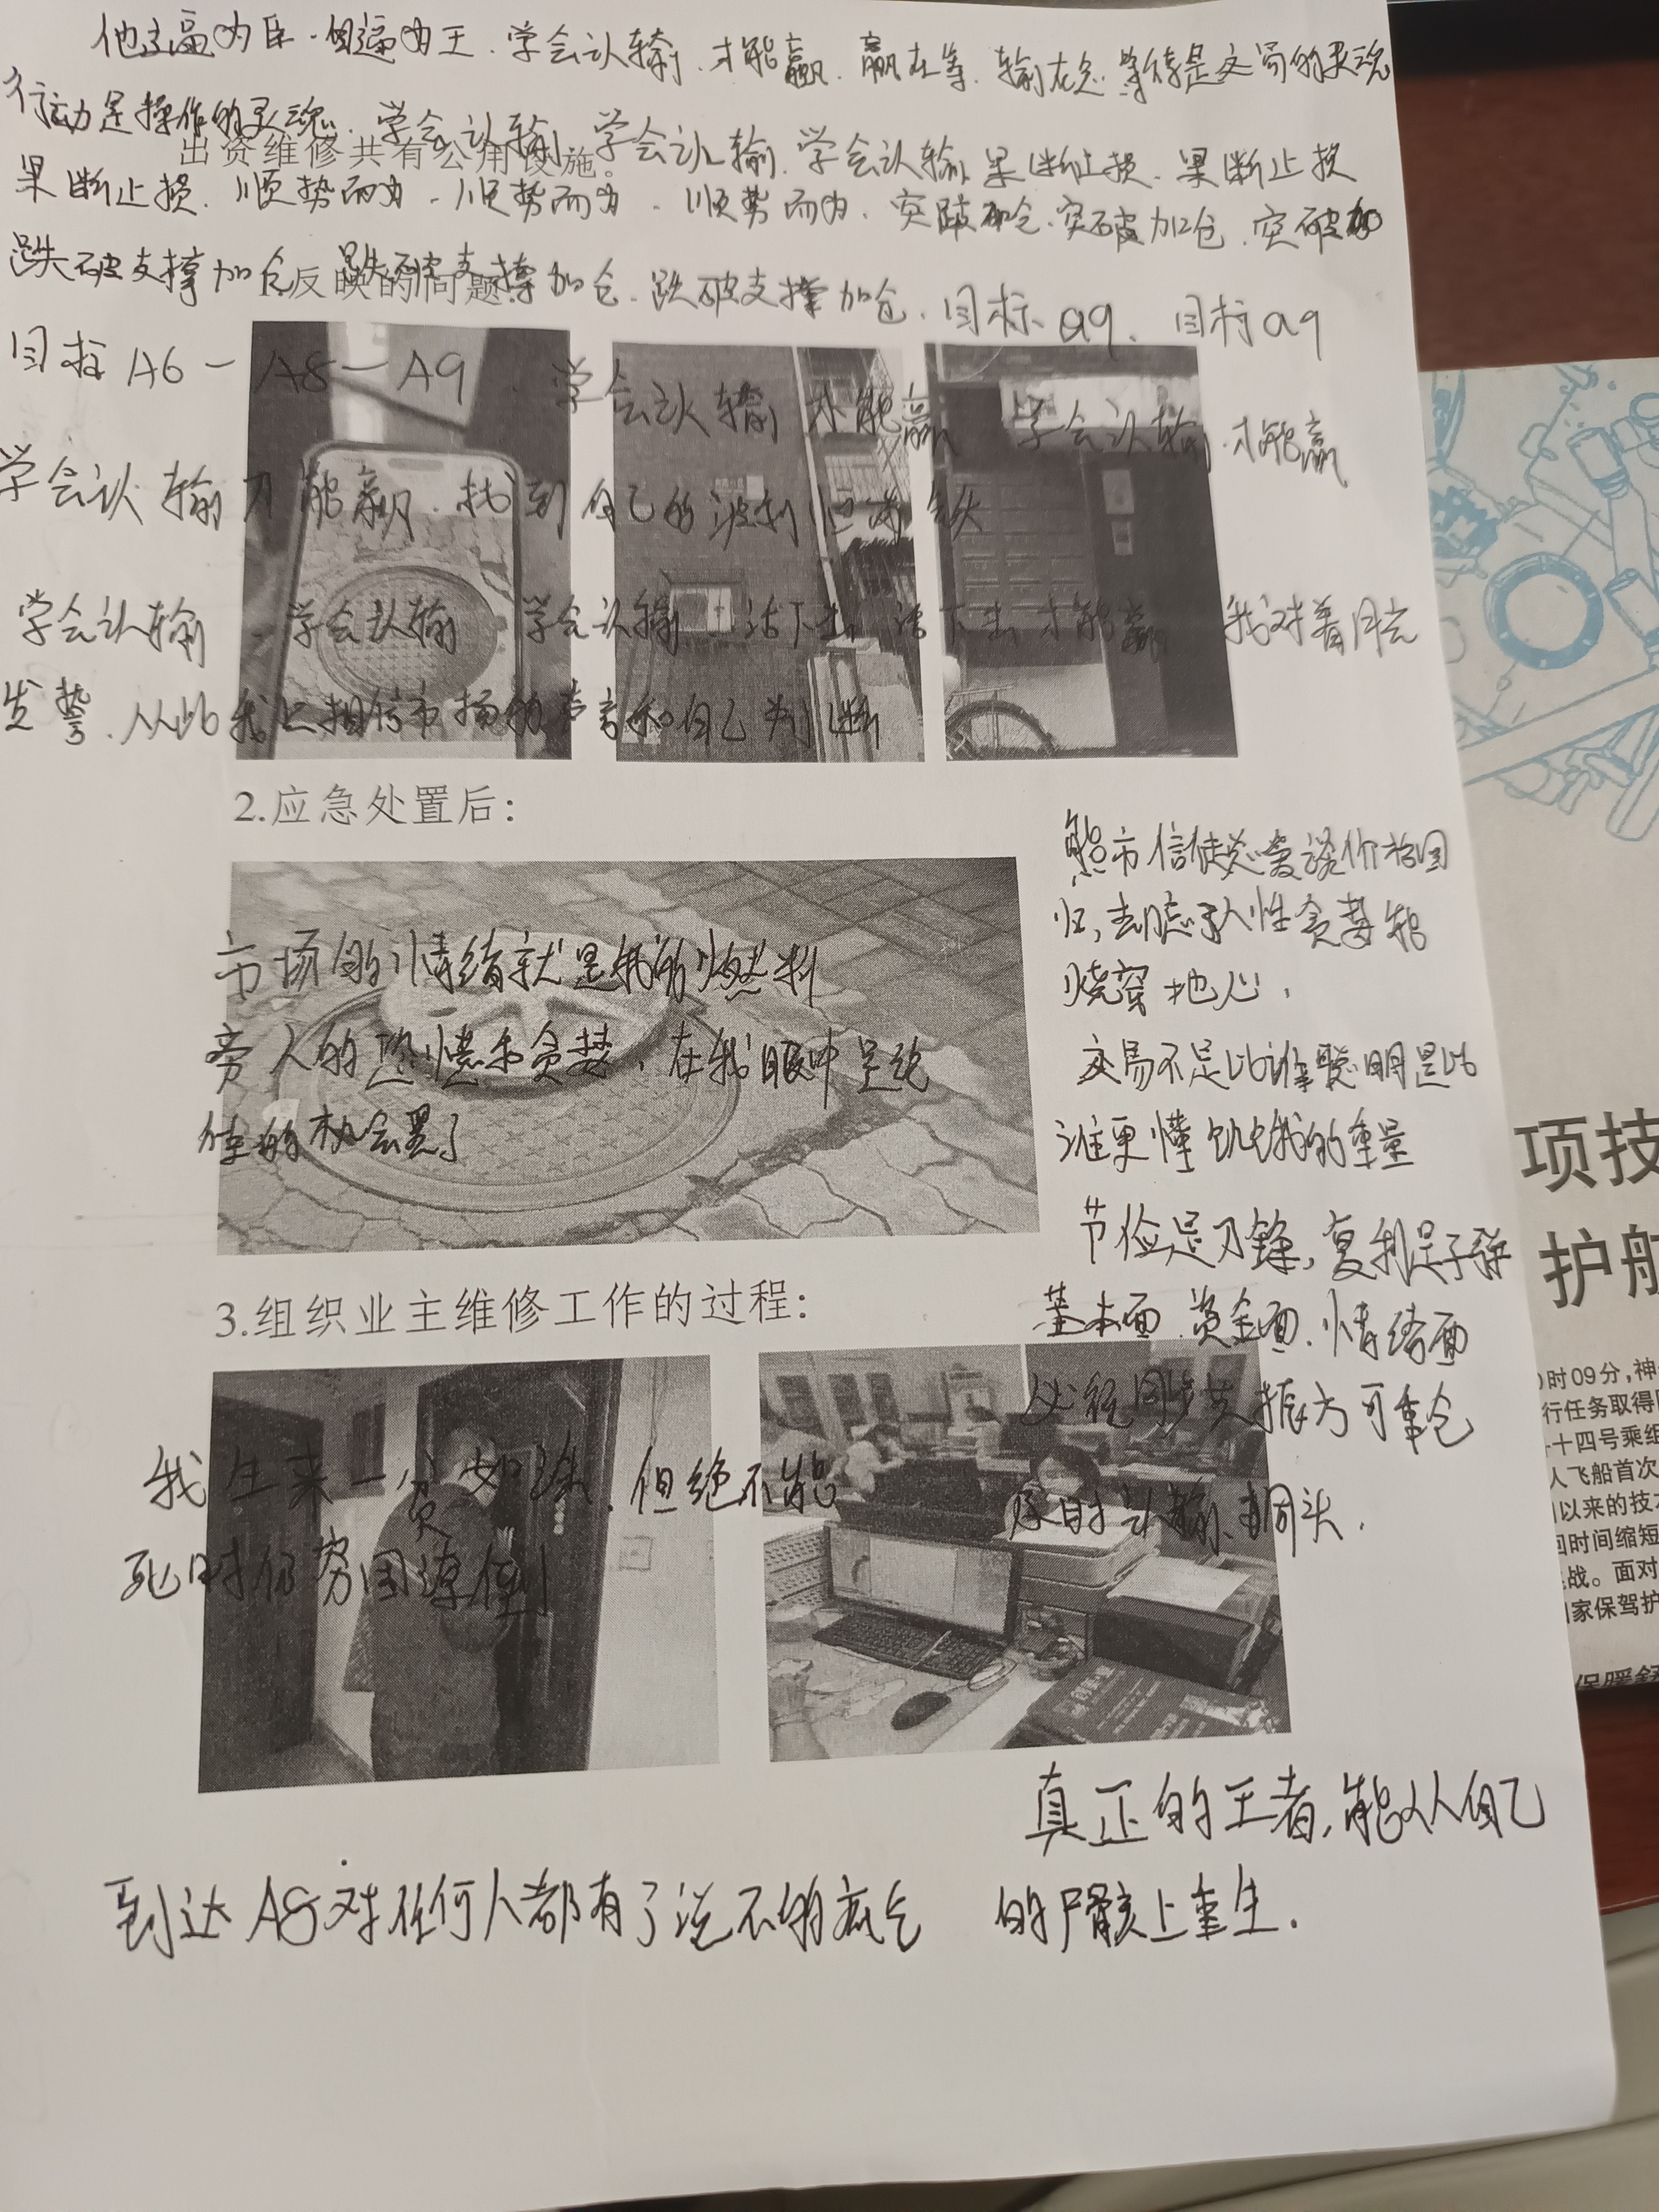 他逼为臣.自逼为王.学会认输.才能赢.赢在等.输在急.等待是交易的灵魂
行动是操作的灵魂.学会认输 学会认输.学会认输 果断止损.果断止损
出资维修共有公用设施。
果断止损.顺势而为.顺势而为.顺势而为.突破加仓.突破加仓.突破加
跌破支撑加仓 跌破支撑加仓.跌破支撑加仓.目标a9.目标a9
1.反映的问题:
目标A6-A8-A9.学会认输才能赢 学会认输.才能赢
学会认输才能赢.找到自己的
学会认输 学会认输 学会认输 活下去 活下去才能赢 我对着月亮
发誓.从此我只相信市场的声音和自己判断
2.应急处置后:
市场的情绪就是我的燃料
旁人的恐慌和贪婪,在我眼中是
的机会罢了
熊市信徒总爱谈价格回
归,却忘了人性贪婪能
烧穿地心.
交易不是比谁聪明是比
谁更懂饥饿的重量
节俭是刀锋,复利是子弹
基本面.资金面.情绪面
必须同步共振方可重仓
3.组织业主维修工作的过程:
我生来一贫如洗.但绝不能
死时仍穷困潦倒
及时认输掉头.
真正的王者,能从自己
的尸骸上重生.
到达A8对任何人都有了说不的底气
项技
护航
时09分,神
行任务取得
十四号乘组
人飞船首次
以来的技
回时间缩短
战。面对
家保驾护
保暖